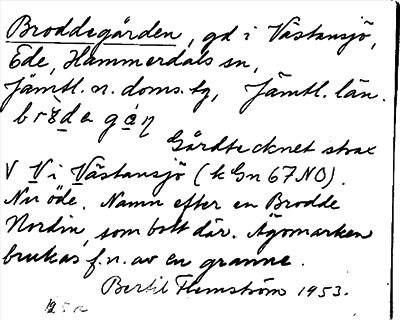 Broddegården, gd i Västansjö,
Ede, Hammerdals sn,
Jämtl. n. doms. tg, Jämtl. län.
Gårdtecknet strax
V V i Västansjö (k Gn 67 NO).
Nu öde. Namn efter en Brodde
Nordin, som bott där. Ägomarken
brukas f.n. av en granne.
Bertil Flemström 1953.